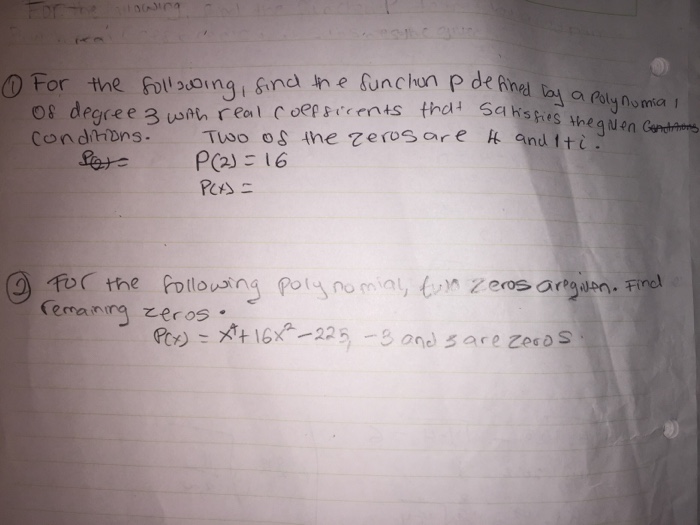 For the
① For the following, find the function P defined by a Polynomial
of degree 3 with real coefficients that satisfies the given Conditions
conditions. Two of the zeros are 4 and 1+i.
P(2) = P(2) = 16
P(x) =
② For the following polynomial, two zeros are given. Find
remaining zeros.
P(x) = x⁴ + 16x² - 225, -3 and 3 are zeros.